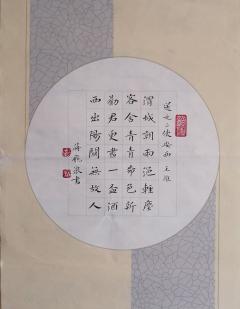 送元二使安西 王維
渭城朝雨浥輕塵
客舍青青柳色新
勸君更盡一杯酒
西出陽關無故人